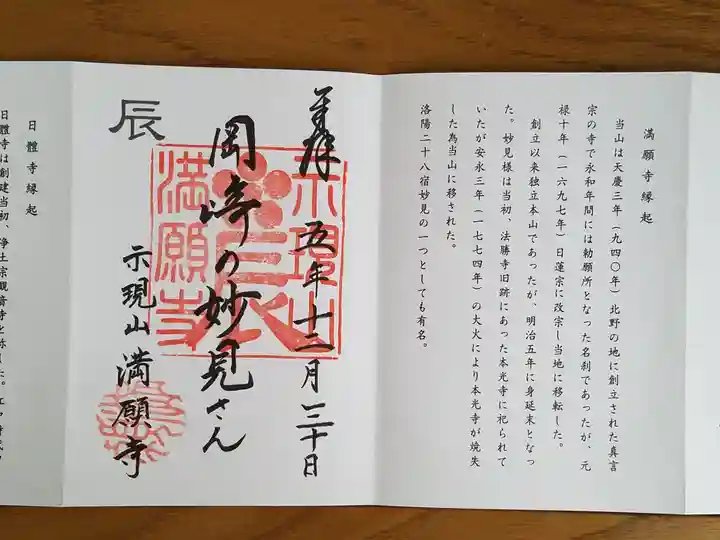 満願寺縁起
当山は天慶三年（九四〇年）北野の地に創立された真言
宗の寺で永和年間には勅願所となった名刹であったが、元
禄十年（一六九七年）日蓮宗に改宗し当地に移転した。
創立以来独立本山であったが、明治五年に身延末となっ
た。妙見様は当初、法勝寺旧跡にあった本光寺に祀られて
いたが安永三年（一七七四年）の大火により本光寺が焼失
した為当山に移された。
洛陽二十八宿妙見の一つとしても有名。
五年十二月三十日
岡崎の妙見さん
辰
示現山 満願寺
示現山
満願寺
日體寺縁起
日體寺は創建当初、浄土宗観音寺と称した。